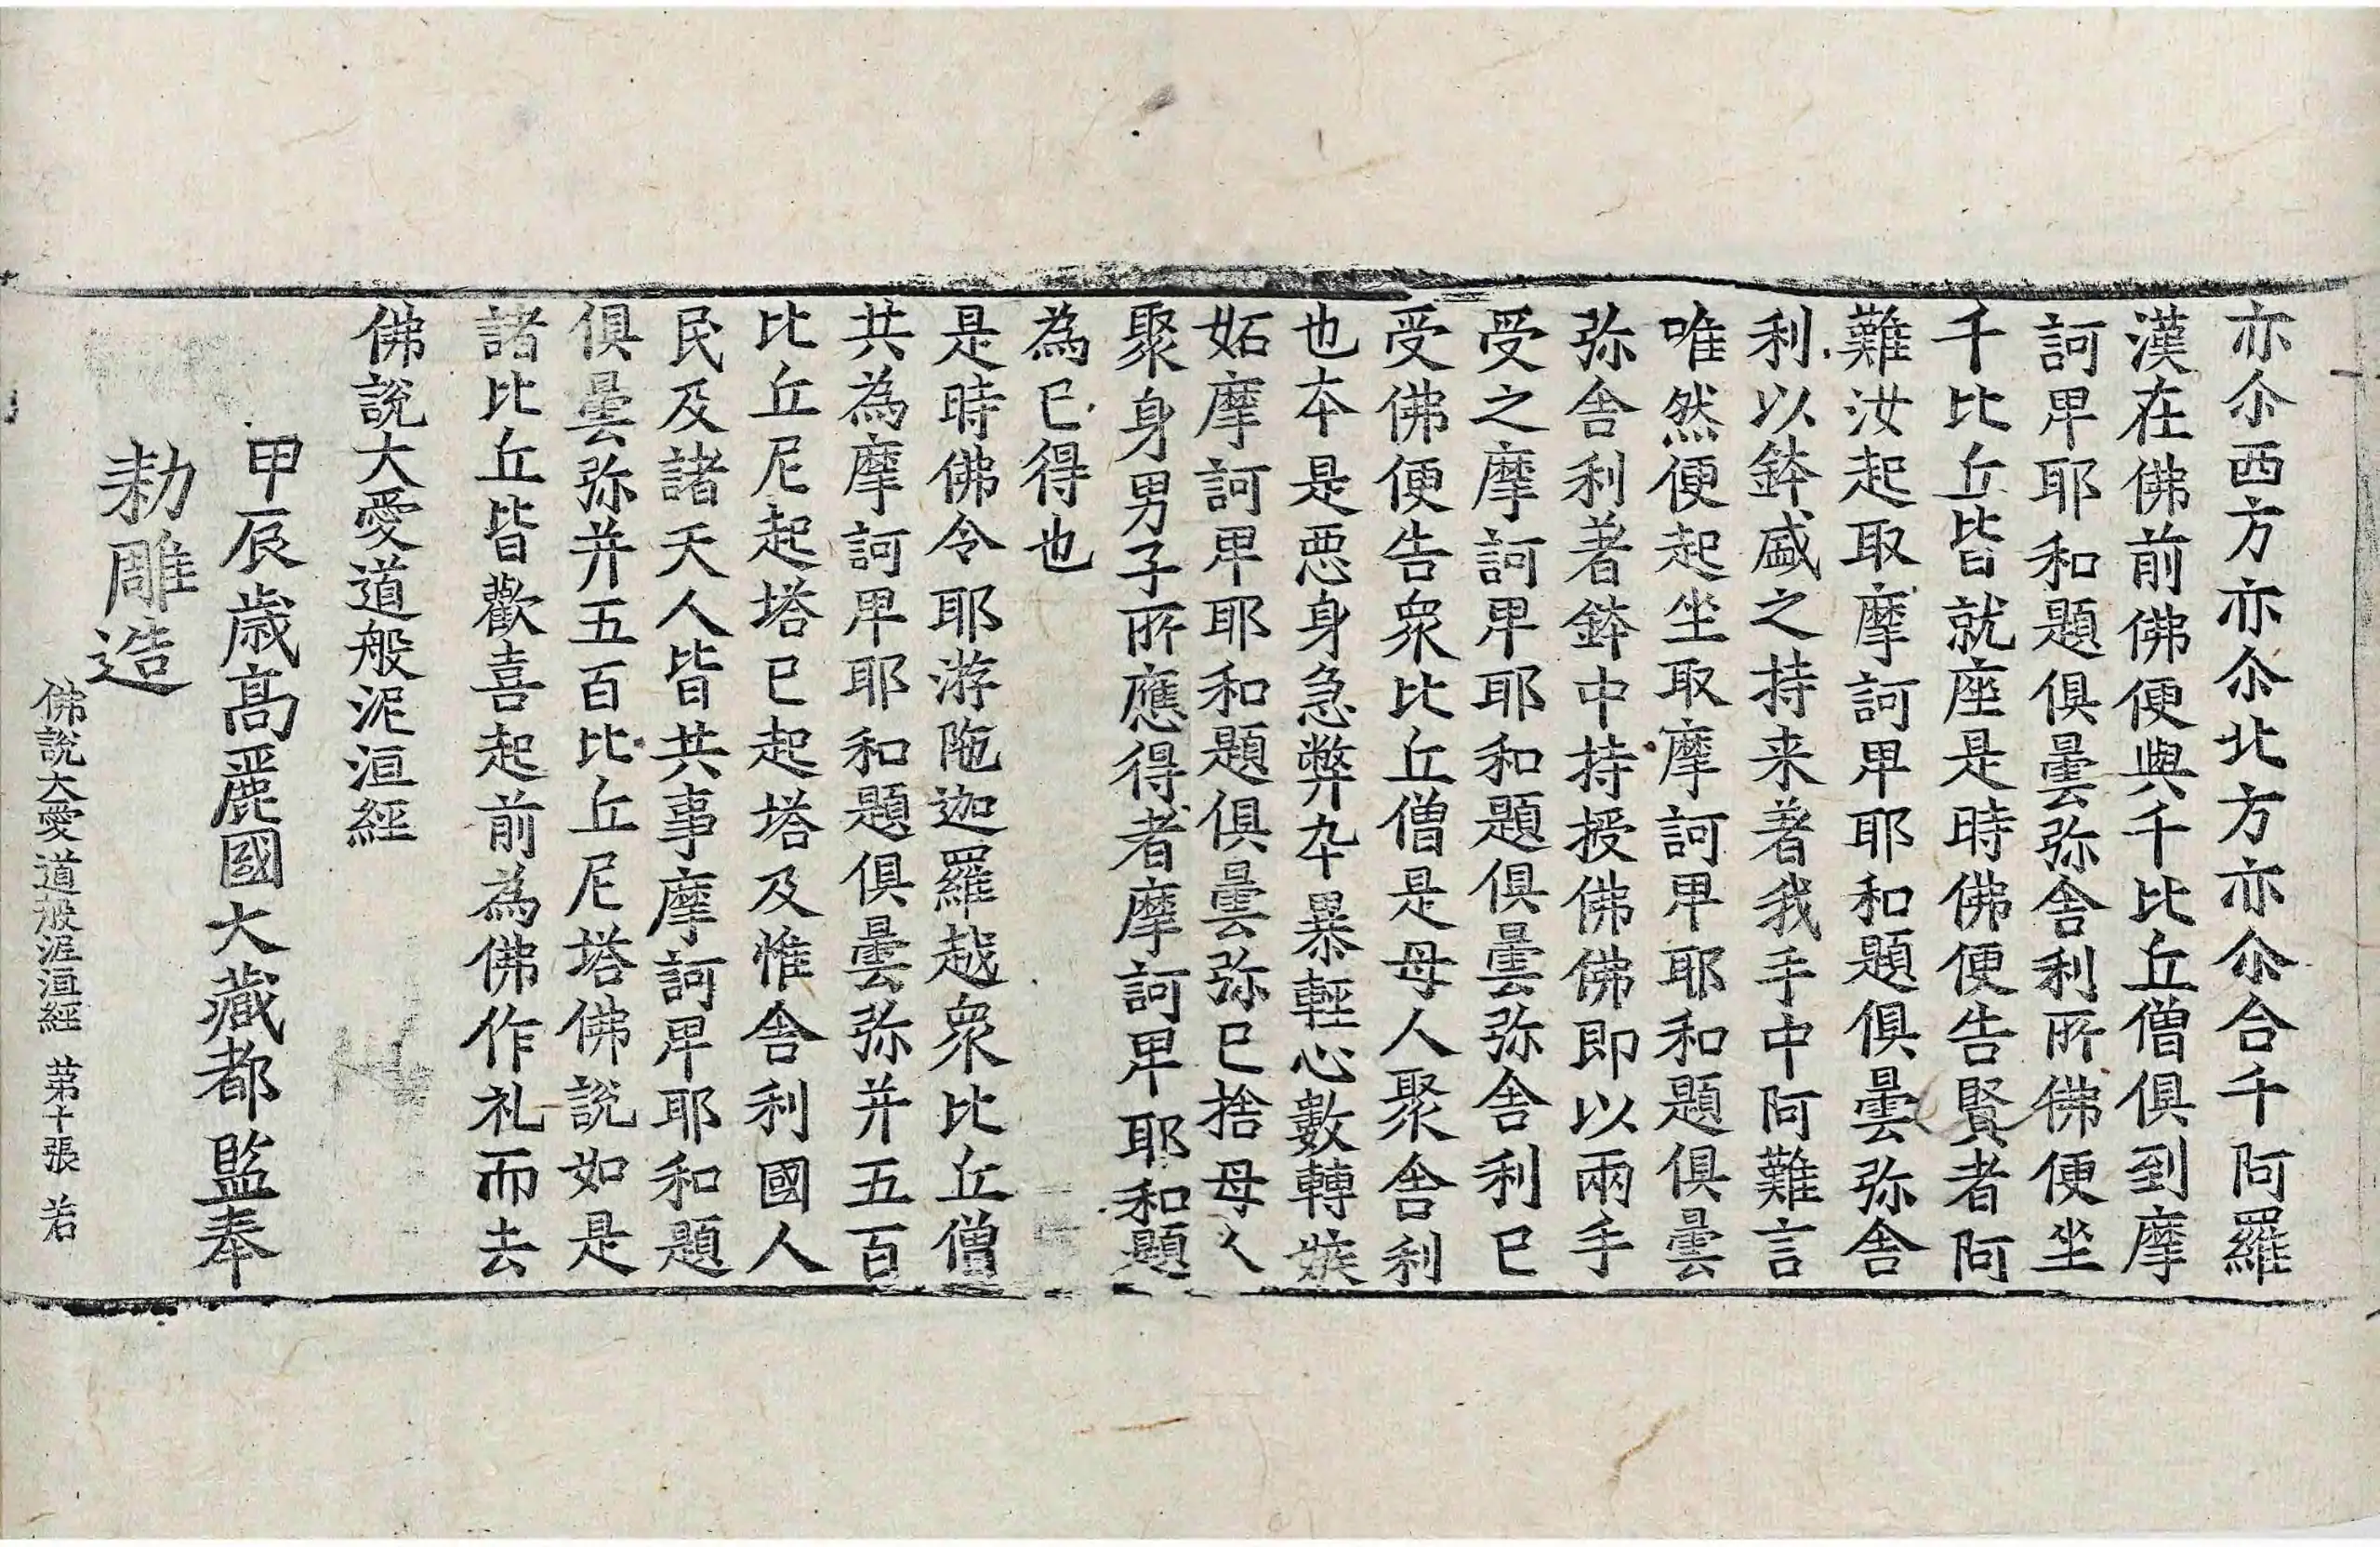 亦尒西方亦尒北方亦尒合千阿羅
漢在佛前佛便與千比丘僧俱到摩
訶卑耶和題俱曇弥舍利所佛便坐
千比丘皆就座是時佛便告賢者阿
難汝起取摩訶卑耶和題俱曇弥舍
利以鉢盛之持来著我手中阿難言
唯然便起坐取摩訶卑耶和題俱曇
弥舍利著鉢中持授佛佛即以兩手
受之摩訶卑耶和題俱曇弥舍利已
受佛便告衆比丘僧是母人聚舍利
也本是惡身急弊卒暴輕心數轉嫉
妬摩訶卑耶和題俱曇弥已捨母人
聚身男子所應得者摩訶卑耶和題
為已得也
是時佛令耶游陁迦羅越衆比丘僧
共為摩訶卑耶和題俱曇弥并五百
比丘尼起塔已起塔及惟舍利國人
民及諸天人皆共事摩訶卑耶和題
俱曇弥并五百比丘尼塔佛說如是
諸比丘皆歡喜起前為佛作礼而去
佛說大愛道般泥洹經
甲辰歳高麗國大藏都監奉
勑雕造
佛說大愛道般泥洹經 苐十張 若